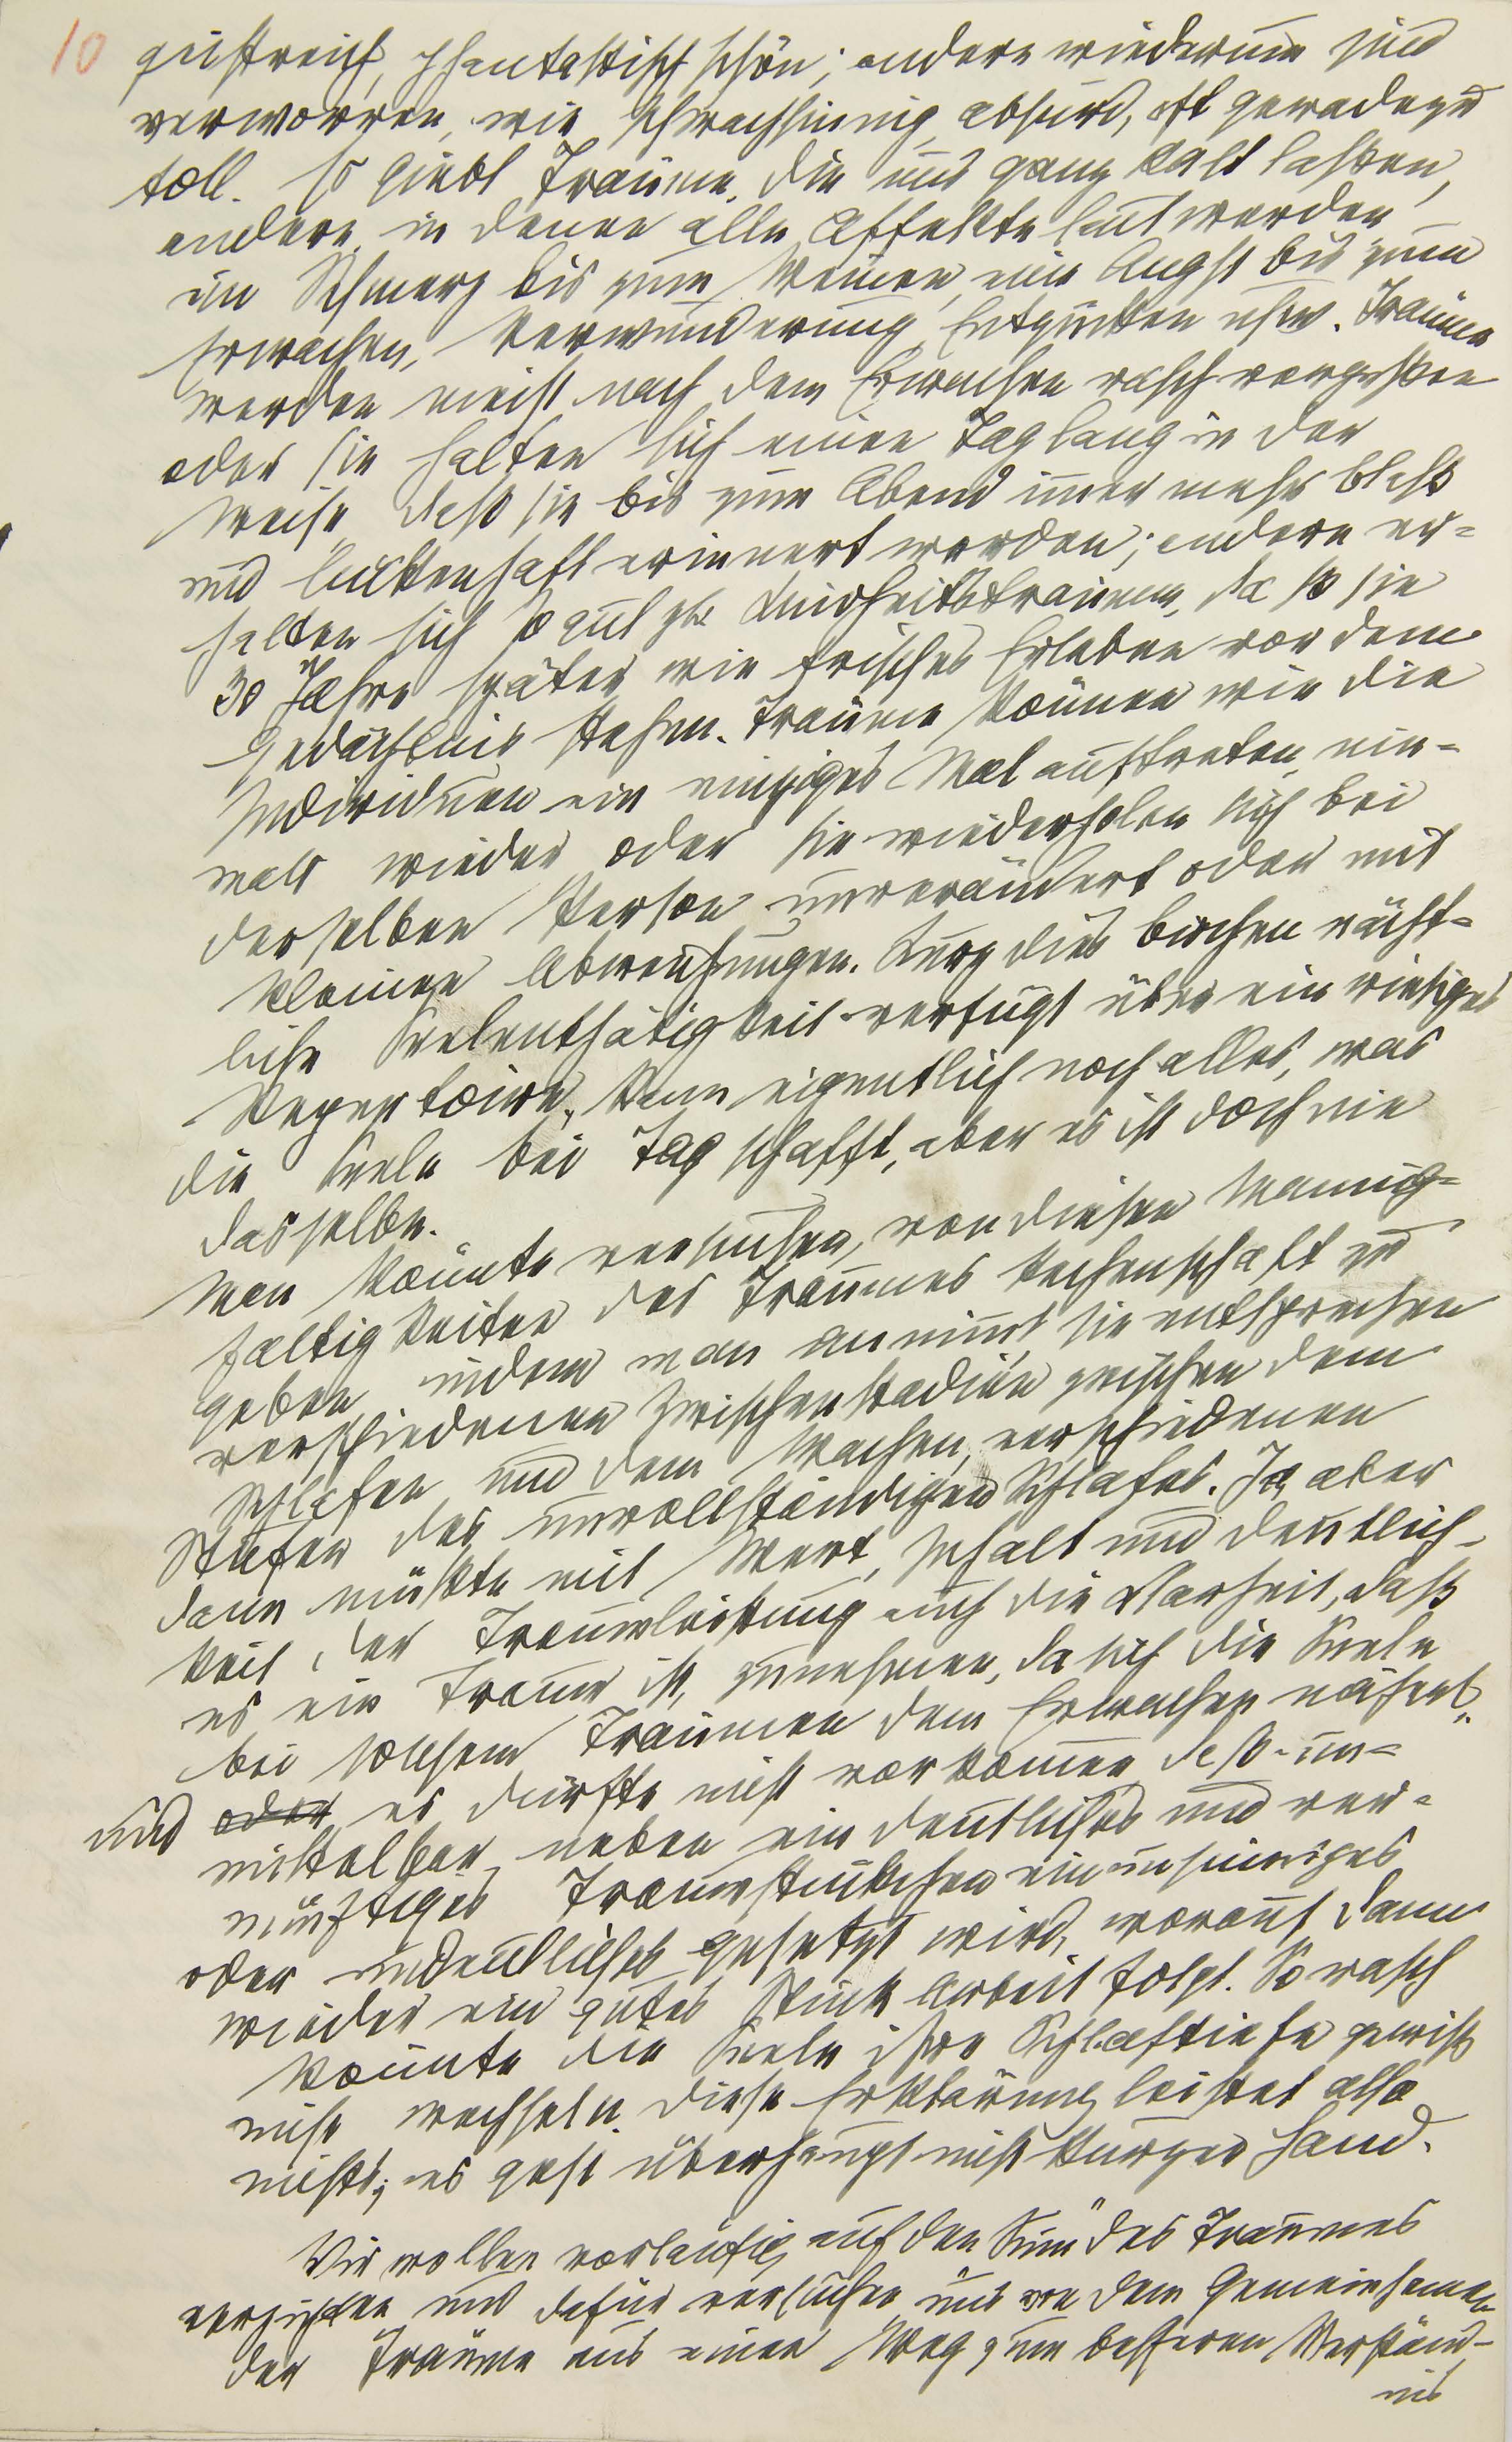 10 geistreich, phantastisch schön; andere wiederum sind
verworren, wie schwachsinnig, absurd, oft geradezu
toll. Es giebt Träume, die uns ganz kalt lassen,
andere, in denen alle Affekte laut werden,
ein Schmerz bis zum Weinen, eine Angst bis zum
Erwachen, Verwunderung, Entzücken usw. Träume
werden meist nach dem Erwachen rasch vergessen
oder sie halten sich einen Tag lang in der
Weise, daß sie bis zum Abend immer mehr blaß
und lückenhaft erinnert werden; andere er-
halten sich so gut zb. Kindheitsträume, daß sie
30 Jahre später wie frisches Erleben vor dem
Gedächtnis stehen. Träume können wie die
Individuen ein einziges Mal auftreten, nie-
mals wieder oder sie wiederholen sich bei
derselben Person unverändert oder mit
kleinen Abweichungen. Kurz dies bischen nächt-
liche Seelenthätigkeit verfügt über ein riesiges
Repertoire, kann eigentlich noch alles, was
die Seele bei Tag schafft, aber es ist doch nie
dasselbe.
Man könnte versuchen, von diesen Mannig-
faltigkeiten des Traumes Rechenschaft zu
geben indem man annimmt sie entsprechen
verschiedenen Zwischenstadien zwischen dem
Schlafen und dem Wachen, verschiedenen
Stufen des unvollständigen Schlafes. Ja aber
dann müßte mit Wert, Inhalt und Deutlich-
keit der Traumleistung auch die Klarheit, daß
es ein Traum ist, zunehmen, da sich die Seele
bei solchem Träumen dem Erwachen nähert,
und oder es dürfte nicht vorkommen daß un-
mittelbar neben ein deutliches und ver-
nünftiges Traumstückchen ein unsinniges
oder undeutliches gesetzt wird, worauf dann
wieder ein gutes Stück Arbeit folgt. So rasch
könnte die Seele ihre Schlaftiefe gewiß
nicht wechseln. Diese Erklärung leistet also
nichts; es geht überhaupt nicht kurzer Hand.
Wir wollen vorläufig auf den „Sinn" des Traumes
verzichten und dafür versuchen uns von dem Gemeinsamen
der Träume aus einen Weg zum besseren Verständ-
nis